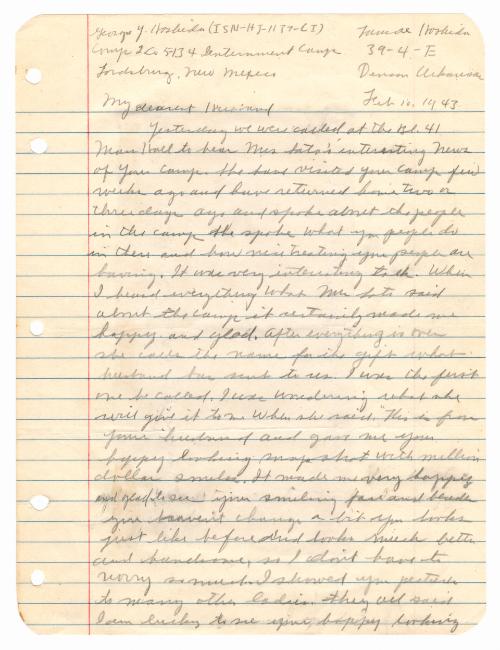 George Y. Hoshida (ISN-HJ-1137-CI)
Tamae Hoshida
Comp 2 Co 5134 Internment Camp
39-4-E
Lordsburg, New Mexico
Denson Arkansas
Feb 10, 1943
My dearest Husband
Yesterday we were called at the Bl. 41
Mess Hall to hear Mrs Sato's interesting news
of your camp. She have visited your camp few
weeks ago and have returned home two or
three days ago and spoke about the people
in the camp. She spoke what you people do
in there and how nice treating you people are
having. It was very interesting to us. When
I heard everything what Mrs Sato said
about the camp it certainly made me
happy and glad. After everything is over
she calls the name for the gift what
husband has sent to us. I was the first
one be called. I was wondering what she
will give it to me When she said, "This is from
your husband and gave me your
happy looking snap shot with million
dollar smiles. It made me very happy
and glad to see your smiling face and beside
you haven't change a bit you looks
just like before and looks much better
and handsome, so I don't have to
worry so much. I showed your picture
to many other ladies. They all said
I am lucky to see your happy looking